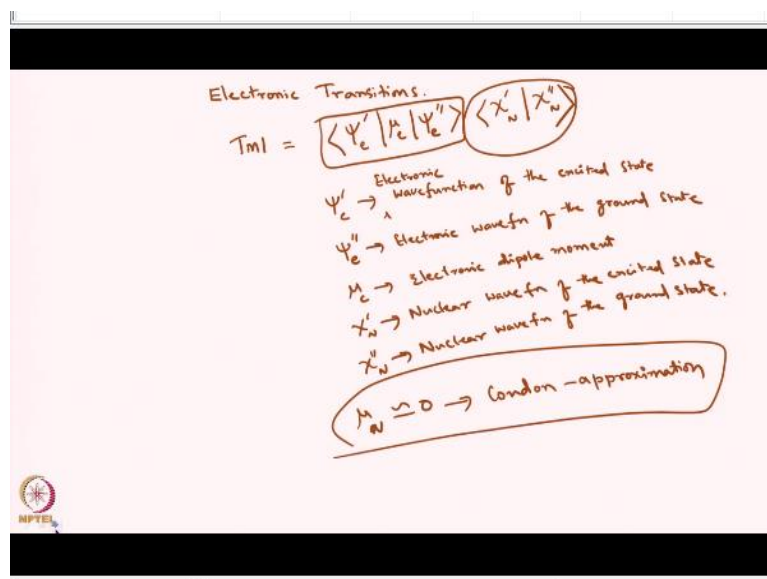 Electronic Transitions.
TMI = ⟨Ψ'e|μe|Ψ''e⟩ ⟨χ'N|χ''N⟩
Ψ'e → Electronic wavefunction of the excited state
Ψ''e → Electronic wavefn of the ground state
μe → Electronic dipole moment
χ'N → Nuclear wavefn of the excited state
χ''N → Nuclear wavefn of the ground state.
μN ≃ 0 → Condon-approximation
NPTEL